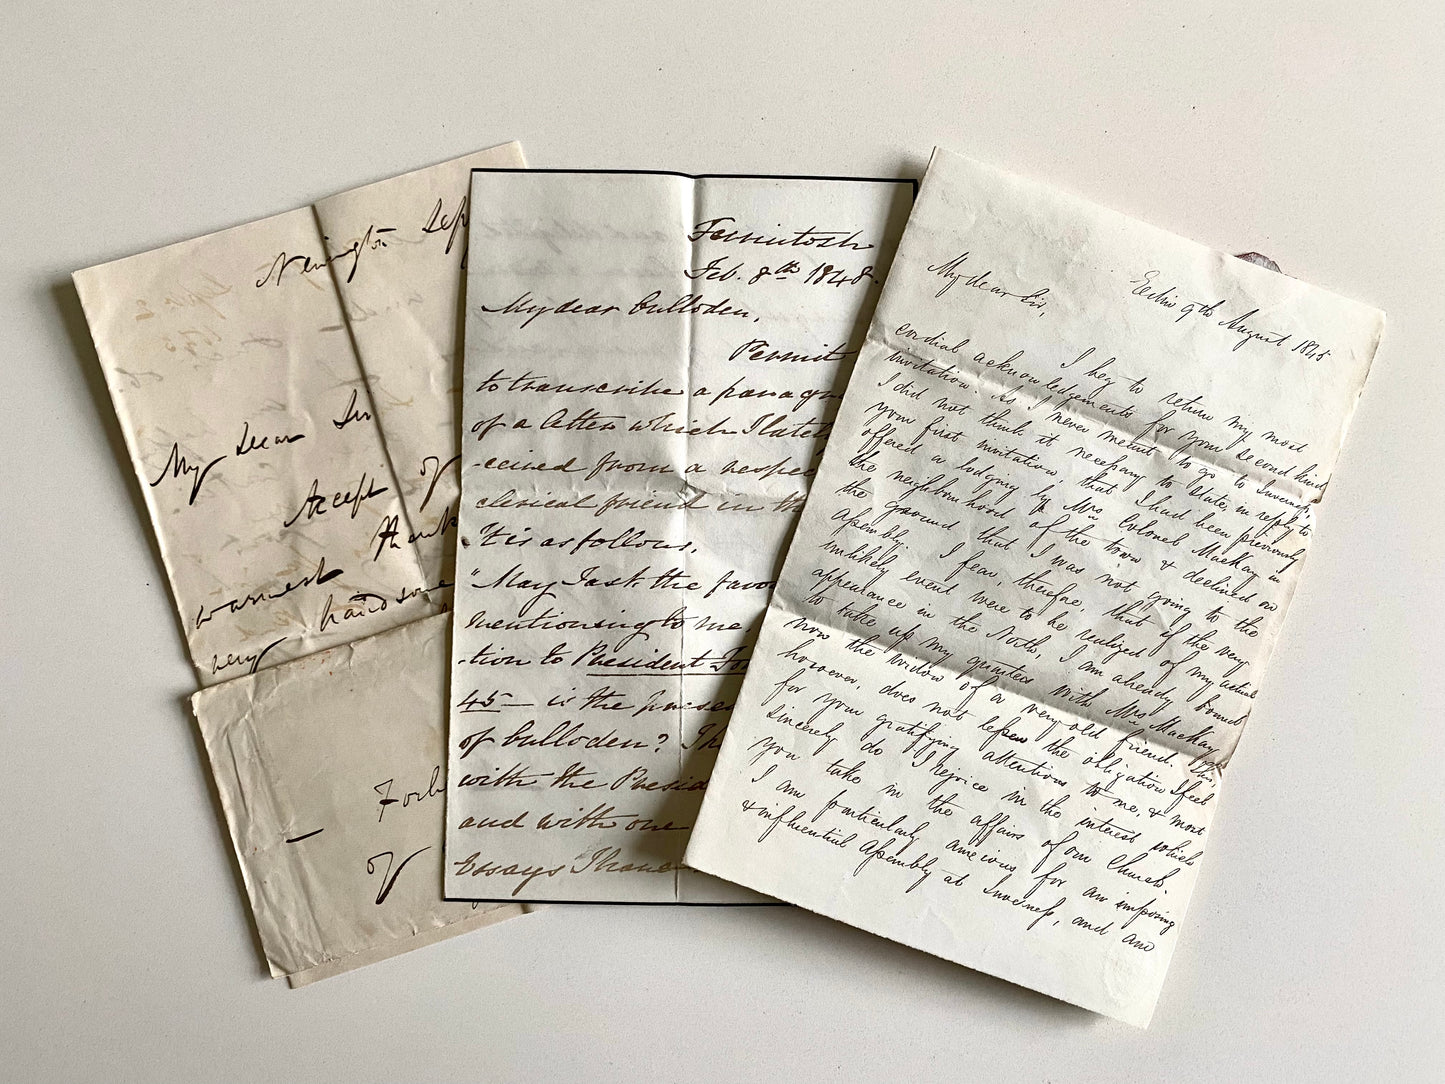 Newington Sep
My Dear Sir
Accept of
warmest thank
very handsome
Forb
of
Ferrintosh
Feb. 8th 1848.
My dear Culloden,
Permit
to transcribe a paragr
of a letter which I latel
-ceived from a respec
clerical friend in th
It is as follows.
"May I ask the favo
mentioning to me,
-tion to President For
45- is the prese
of Culloden? I h
with the Presid
and with one
Essays I have
9th August 1845
My dear Sir,
I beg to return my most
cordial acknowledgements for your second kind
invitation. As I never meant to go to Inverness,
I did not think it necessary to state, in reply to
your first invitation, that I had been previously
offered a lodging by Mrs Colonel Mackay in
the neighbourhood of the town & declined on
the ground that I was not going to the
Assembly. I fear, therefore, that if the very
unlikely event were to be realized of my actual
appearance in the North, I am already bound
to take up my quarters with Mrs Mackay,
now the widow of a very old friend. This,
however, does not lessen the obligation I feel
for your gratifying attentions to me, & most
sincerely do I rejoice in the interest which
you take in the affairs of our Church.
I am particularly anxious for an imposing
& influential Assembly at Inverness, and am